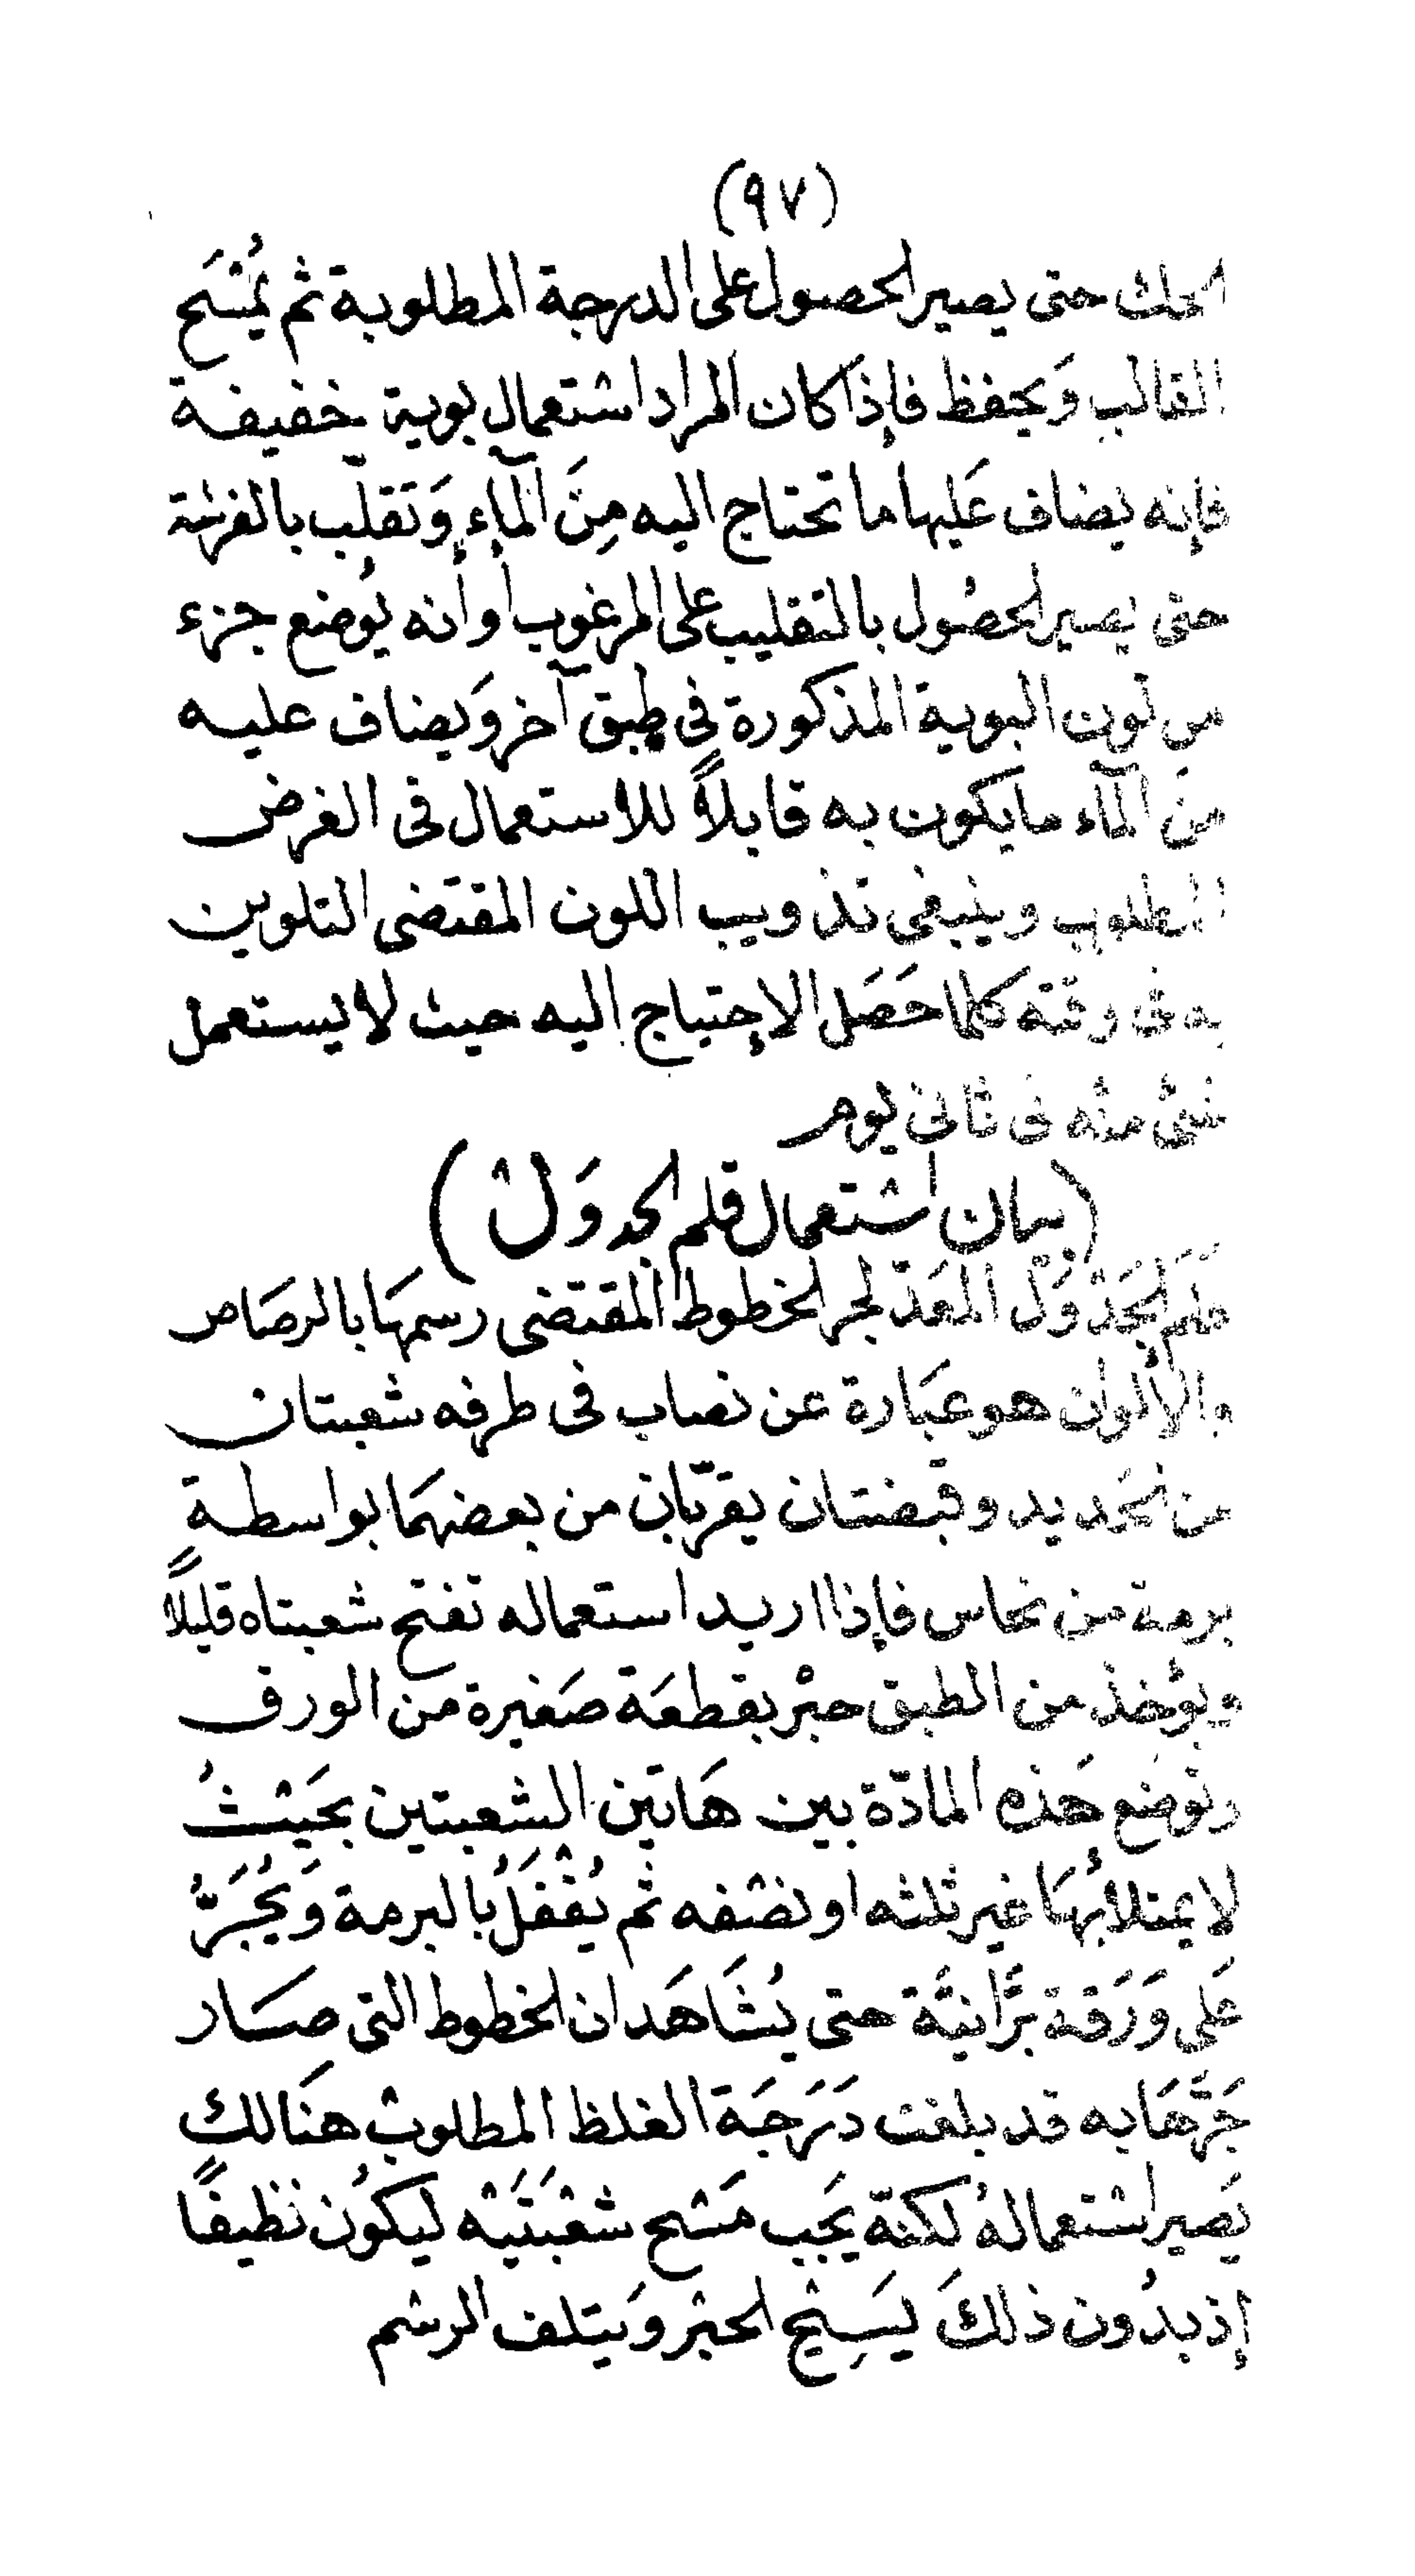 (٩٧)
الحك حتى يصير الحصول على الدرجة المطلوبة ثم يُمْسَح
القالب وَيحفظ فإذا كان المراد اسْتعمال بوية خفيفة
فإنه يضاف عَليها ما تحتاج اليه مِنَ المآءِ وَتَقلّب بالفرشة
حتى يصير الحصُول بالتقليب على المرغوب أو أنه يُوضع جزء
من لون البوية المذكورة فى طبق آخر وَيضاف عليه
منَ المآء ما يكون به قابلاً للاستعمال فى الغرض
المطلوب وينبغى تذويب اللون المقتضى التلوين
به فى وقته كلما حَصَل الاحتياج اليه حيث لا يستعمل
شئ منه فى ثانى يوم
(بيان اسْتعمال قلم الجدوَلْ)
قَلَم الجَدْوَلْ المعَدّ لجر الخطوط المقتضى رسمهَا بالرصَاص
والألوان هو عبَارة عن نصاب فى طرفه شعبتان
من الحَديد وقبضتان يقرّبان من بعضهمَا بواسطة
برمة من نحاس فإذا اريد استعماله تفتح شعبتاه قليلاً
ويؤخذ من الطبق حبْر بقطعَة صَغيرة من الورق
وتوضَع هَذه المادّة بين هَاتَين الشعبتين بحَيْثُ
لا يمتلأُ بهَا غير ثلثه او نصْفه ثم يُقْفَلُ بالبرمة وَيُجَرُّ
عَلى وَرَقة بَرَّانيَّة حتى يُشَاهَد ان الخطوط التى صَار
جَرّهَا به قد بلغت دَرَجَة الغلظ المطلوبْ هنَالك
يَصير اسْتعمالهُ لكنّه يَجب مَسْح شعْبَتَيْه ليكوُن نظيفًا
إذ بدُون ذلكَ يَسِيْح الحبْر وَيتلف الرسْم